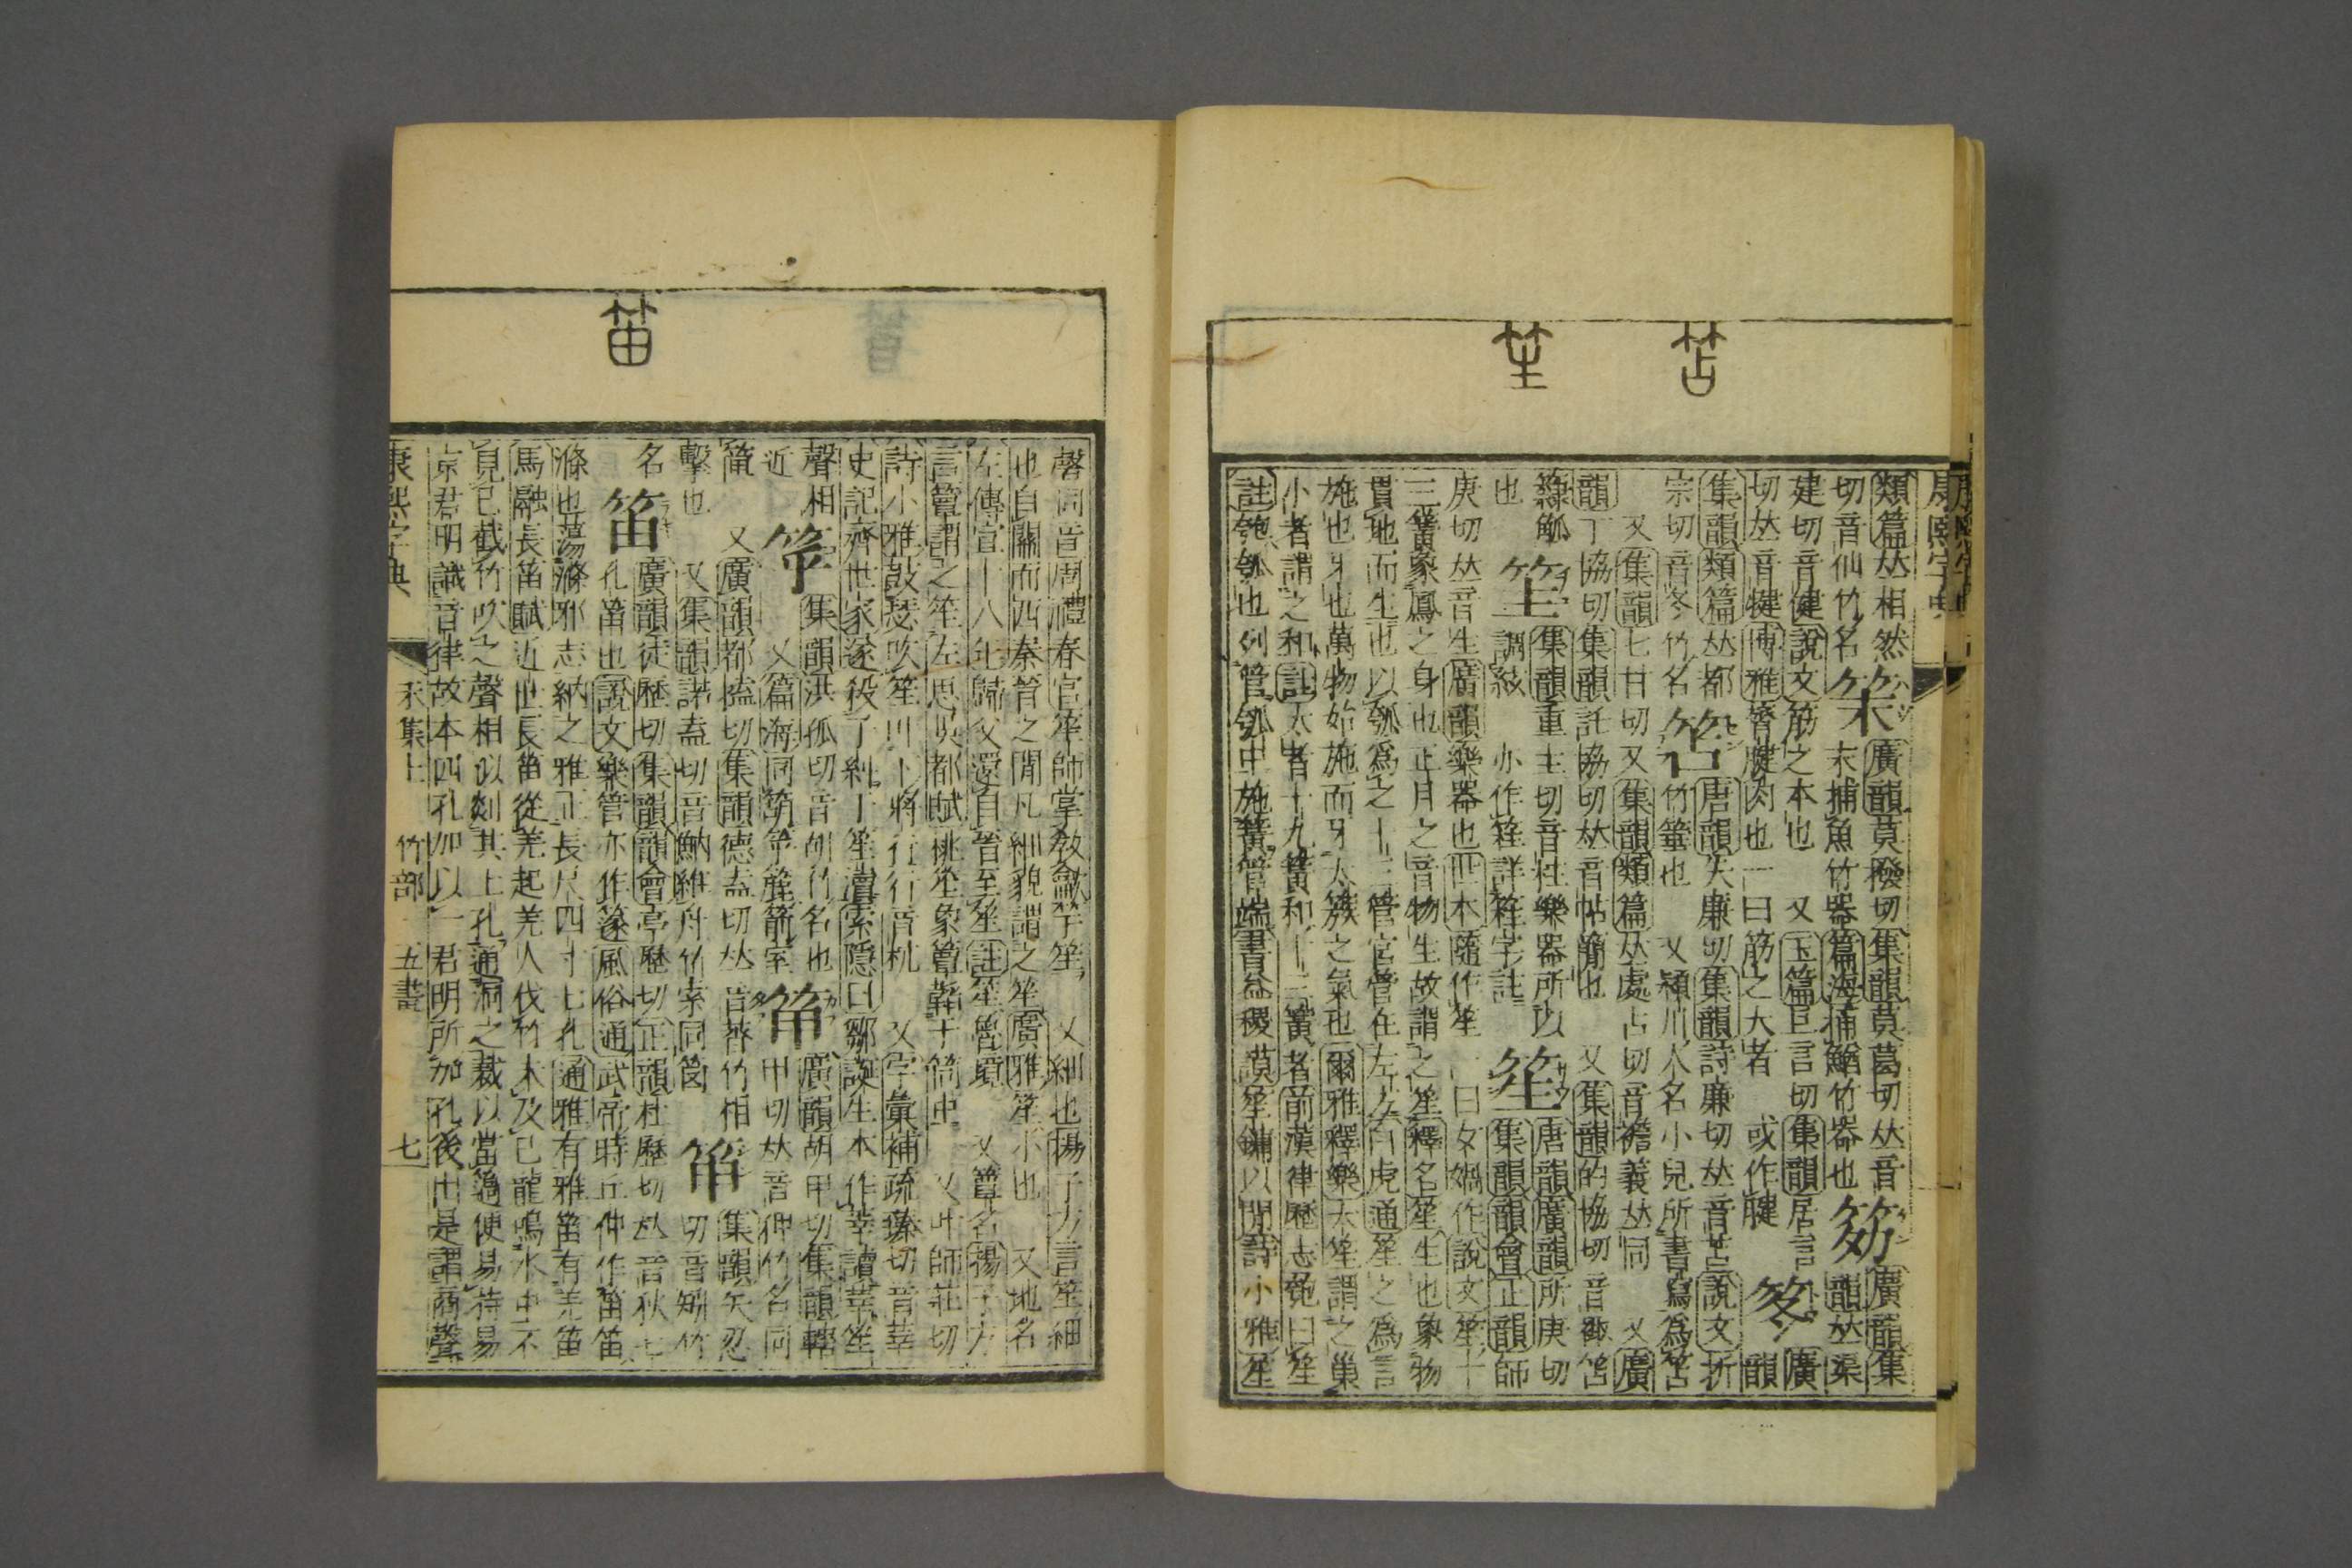 笘
笙
康熙字典
類篇𠀤相然
切音仙竹名
笨
廣韻莫撥切集韻莫葛切𠀤音
末捕魚竹器篇海捕鰌竹器也
笏
廣韻集
韻𠀤渠
建切音健說文筋之本也 又玉篇巨言切集韻居言
切𠀤音犍博雅膂腱肉也一曰筋之大者 或作腱
笗
廣
韻
集韻類篇𠀤都
宗切音冬竹名
笘
唐韻失廉切集韻詩廉切𠀤音苫說文折
竹箠也 又潁川人名小兒所書寫爲笘
又集韻七甘切又集韻類篇𠀤處占切音襜義𠀤同 又廣
韻丁協切集韻託協切𠀤音帖簡也 又集韻的協切音㩉笘
籙觚
也
𥬒
集韻重主切音柱樂器所以
調絃 亦作䇠詳䇠字註
笙
唐韻廣韻所庚切
集韻韻會正韻師
庚切𠀤音生廣韻樂器也世本隨作笙一曰女媧作說文笙十
三簧象鳳之身也正月之音物生故謂之笙釋名笙生也象物
貫地而生也以瓠爲之十三管宮管在左方白虎通笙之爲言
施也牙也萬物始施而牙太簇之氣也爾雅釋樂大笙謂之巢
小者謂之和註大者十九簧和十三簧者前漢律歷志匏曰笙
註匏瓠也列管瓠中施簧管端書益稷謨笙鏞以閒詩小雅笙
笛
磬同音周禮春官笙師掌敎龡竽笙 又細也揚子方言笙細
也自關而西秦晉之閒凡細貌謂之笙廣雅笙小也 又地名
左傳宣十八年歸父還自晉至笙註笙魯境 又簟名揚子方
言簟謂之笙左思吳都賦桃笙象簟韜于筒中 又叶師莊切
詩小雅鼓瑟吹笙叶下將行行音杭 又字彙補疏臻切音莘
史記齊世家遂殺子糾于笙瀆索隱曰鄒誕生本作莘讀莘笙
聲相
近
笌
集韻洪孤切音胡竹名也
又篇海同箶笌簏箭室
笚
廣韻胡甲切集韻轄
甲切𠀤音狎竹名同
䈄
又廣韻都榼切集韻德盍切𠀤音𦗁竹相
擊也 又集韻諾盍切音魶維舟竹索同䈫
笧
集韻矢忍
切音矧竹
名
笛
廣韻徒歷切集韻韻會亭歷切正韻杜歷切𠀤音狄七
孔笛也說文樂管亦作篴風俗通武帝時丘仲作笛笛
滌也蕩滌邪志納之雅正長尺四寸七孔通雅有雅笛有羌笛
馬融長笛賦近世長笛從羌起羌人伐竹未及已龍鳴水中不
見已截竹吹之聲相似剡其上孔通洞之裁以當簻便易持易
京君明識音律故本四孔加以一君明所加孔後出是謂商聲
康熙字典 未集上 竹部 五畫 七